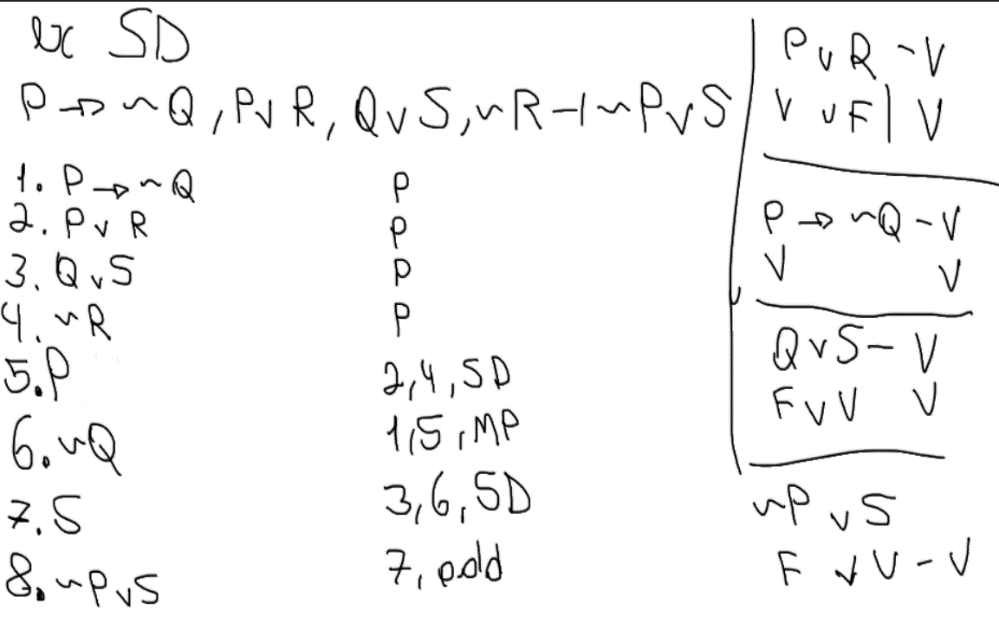 ex SD
P → ~Q, P v R, Q v S, ~R ⊣ ~P v S
1. P → ~Q P
2. P v R P
3. Q v S P
4. ~R P
5. P 2,4, SD
6. ~Q 1,5, MP
7. S 3,6, SD
8. ~P v S 7, add
P v R - V
V v F | V
P → ~Q - V
V V
Q v S - V
F v V V
~P v S
F v V - V